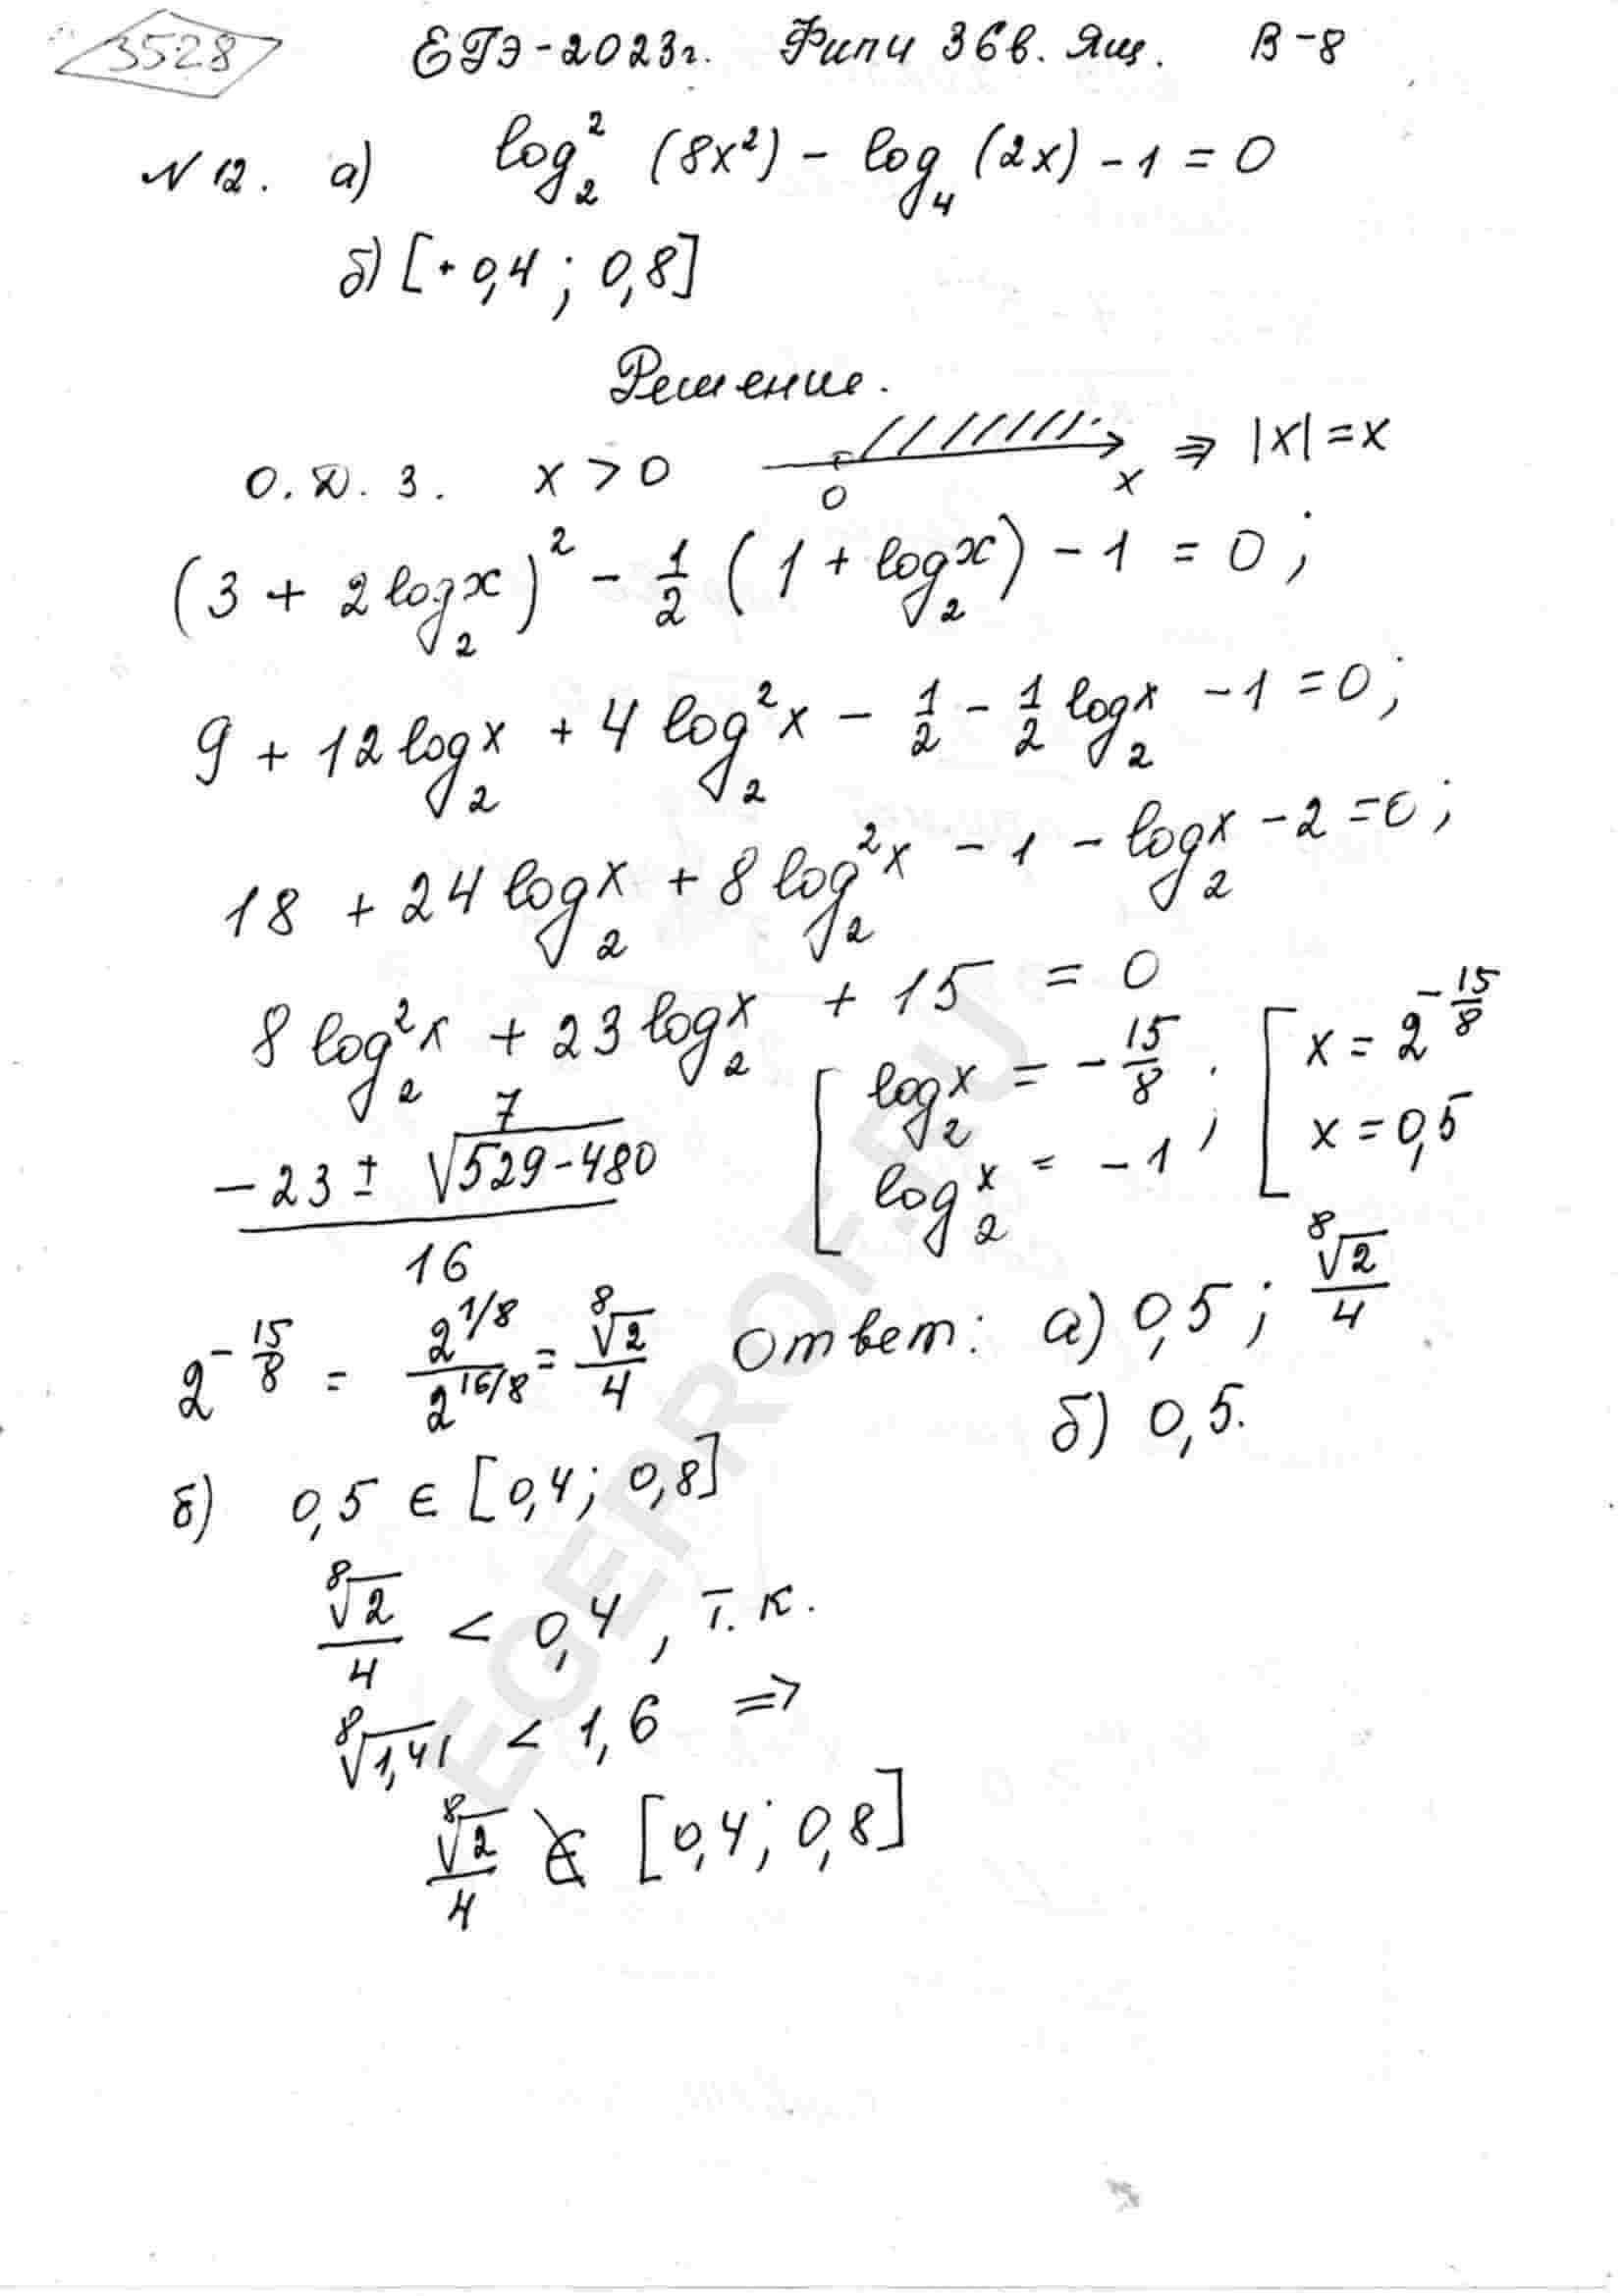 3528 ЕГЭ-2023г. Фипи 36в. Ящ. В-8
N12. а) log₂² (8x²) - log₄ (2x) - 1 = 0
б) [+0,4; 0,8]
Решение.
О.Д.З. x > 0 0 x ⇒ |x| = x
(3 + 2log₂x)² - 1/2 (1 + log₂x) - 1 = 0;
9 + 12log₂x + 4log₂²x - 1/2 - 1/2 log₂x - 1 = 0;
18 + 24log₂x + 8log₂²x - 1 - log₂x - 2 = 0;
8log₂²x + 23log₂x + 15 = 0
7
(-23 ± √(529-480))/16 [ log₂x = -15/8 log₂x = -1 ; [ x = 2^(-15/8) x = 0,5
2^(-15/8) = 2^(1/8)/2^(16/8) = ⁸√2/4 Ответ: а) 0,5; ⁸√2/4
б) 0,5.
б) 0,5 ∈ [0,4; 0,8]
⁸√2/4 < 0,4, т.к.
⁸√1,41 < 1,6 ⇒
⁸√2/4 ∉ [0,4; 0,8]
EGEPROF.RU